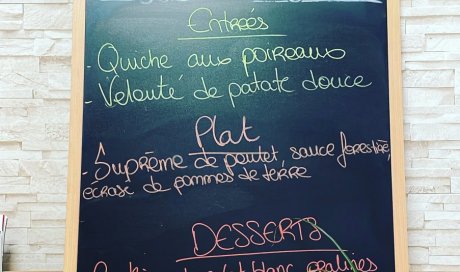 Entrées
- Quiche aux poireaux
- Velouté de patate douce
Plat
- Suprême de poulet, sauce forestière,
écrasé de pommes de terre
DESSERTS
blanc pralines